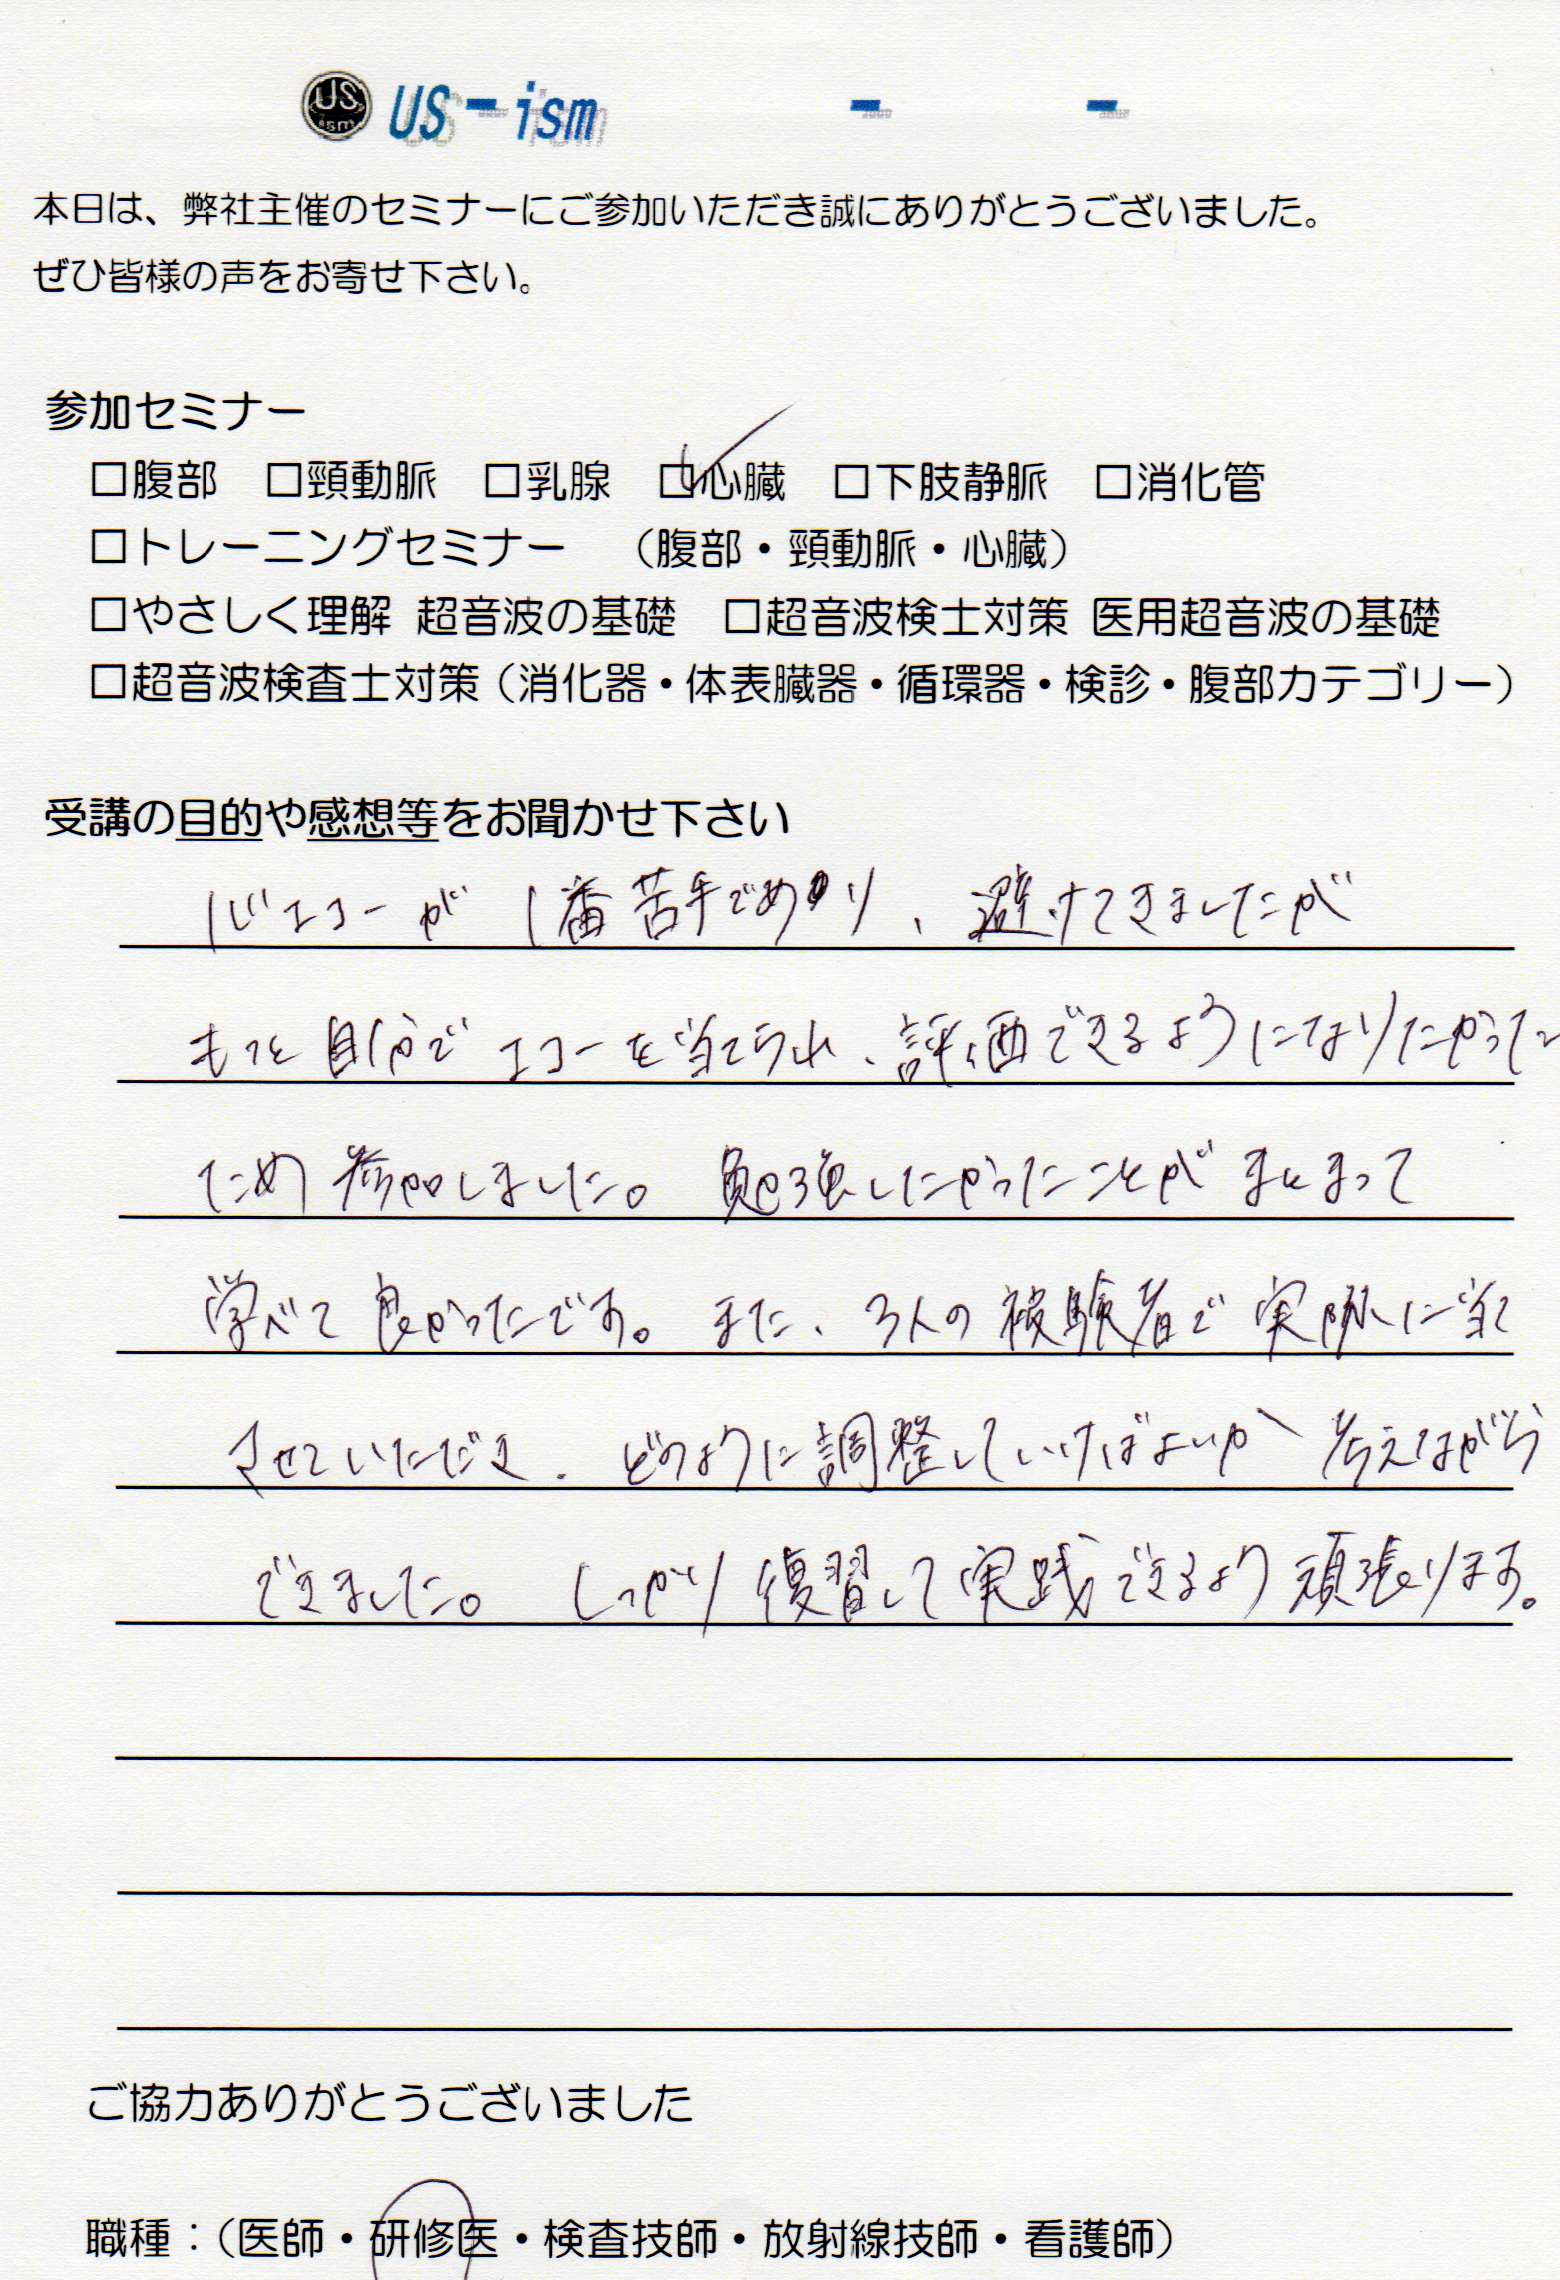 US ism US-ism - -
本日は、弊社主催のセミナーにご参加いただき誠にありがとうございました。
ぜひ皆様の声をお寄せ下さい。
参加セミナー
□腹部 □頸動脈 □乳腺 ☑心臓 □下肢静脈 □消化管
□トレーニングセミナー （腹部・頸動脈・心臓）
□やさしく理解 超音波の基礎 □超音波検士対策 医用超音波の基礎
□超音波検査士対策（消化器・体表臓器・循環器・検診・腹部カテゴリー）
受講の目的や感想等をお聞かせ下さい
心エコーが1番苦手であり、避けてきましたが
もっと自分でエコーを当てられ、評価できるようになりたかった
ため参加しました。勉強したかったことがまとまって
学べて良かったです。また、3人の被験者で実際に当て
させていただき、どのように調整していけばよいか考えながら
できました。しっかり復習して実践できるよう頑張ります。
ご協力ありがとうございました
職種：（医師・研修医・検査技師・放射線技師・看護師）